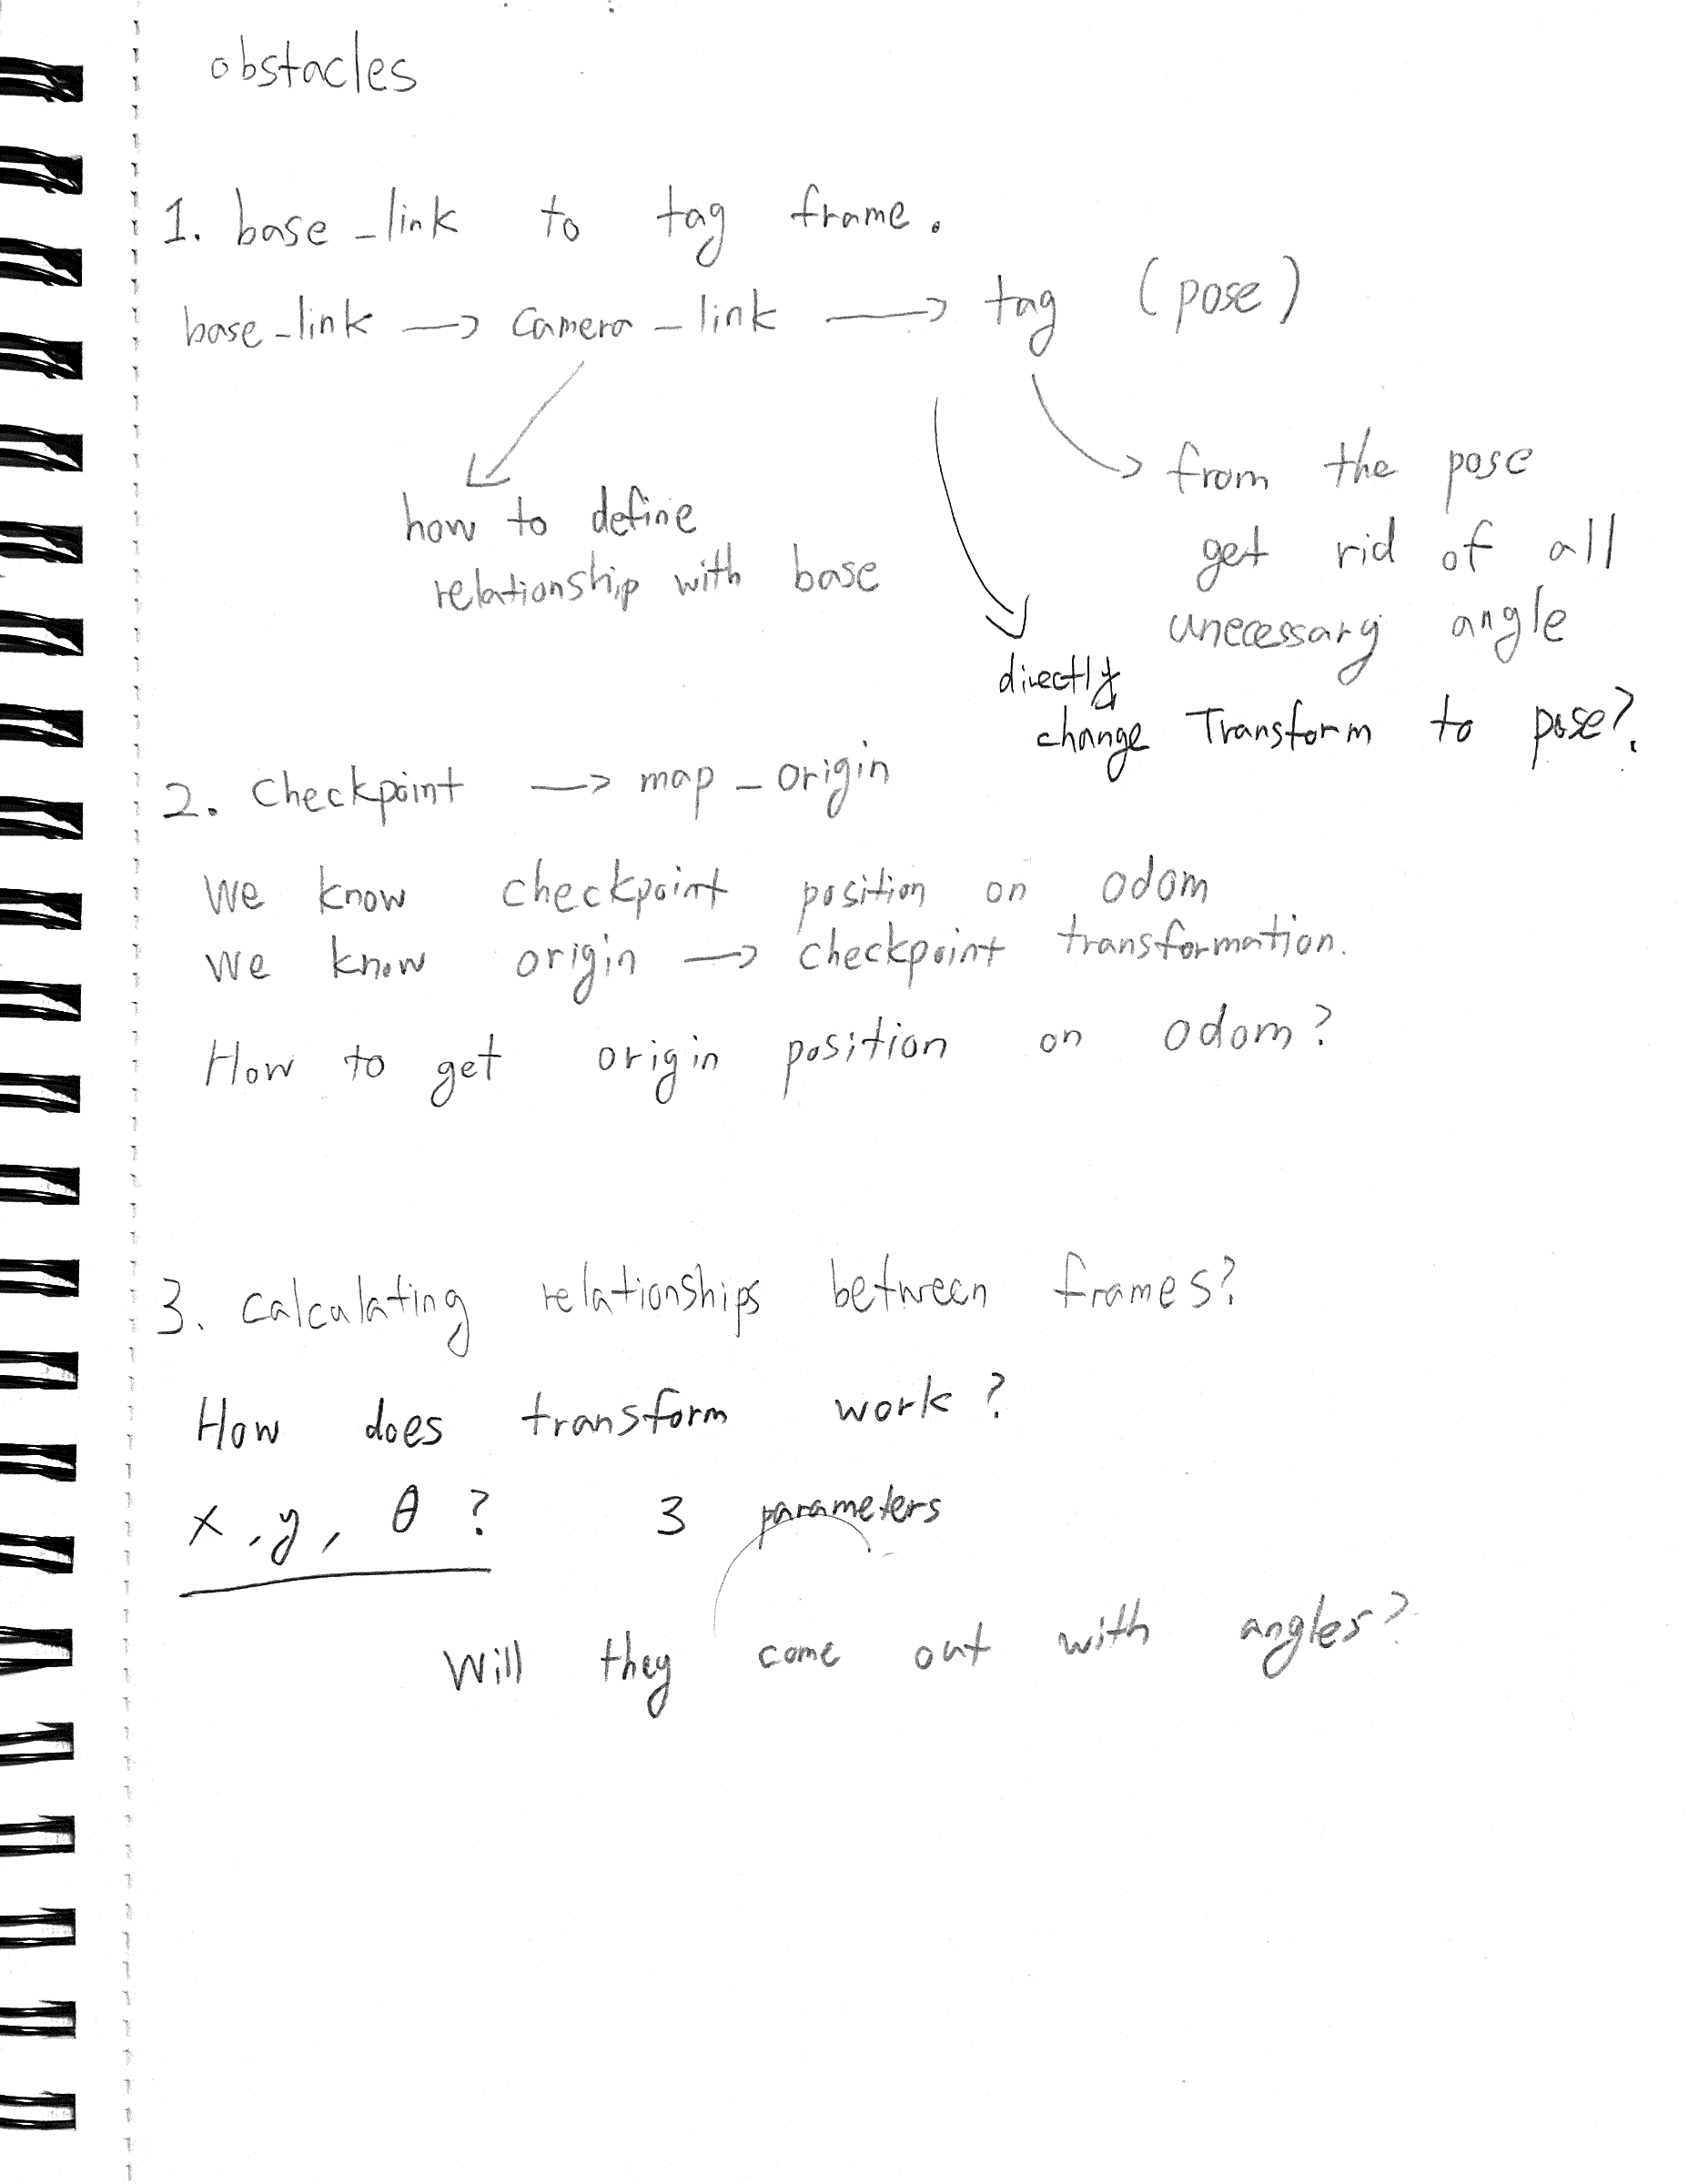 obstacles
1. base_link to tag frame.
base_link → camera_link → tag (pose)
how to define
relationship with base
from the pose
get rid of all
unecessary angle
directly
change Transform to pose?
2. Checkpoint → map_origin
We know checkpoint position on odom
We know origin → checkpoint transformation.
How to get origin position on odom?
3. Calculating relationships between frames?
How does transform work?
x, y, θ ? 3 parameters
Will they come out with angles?